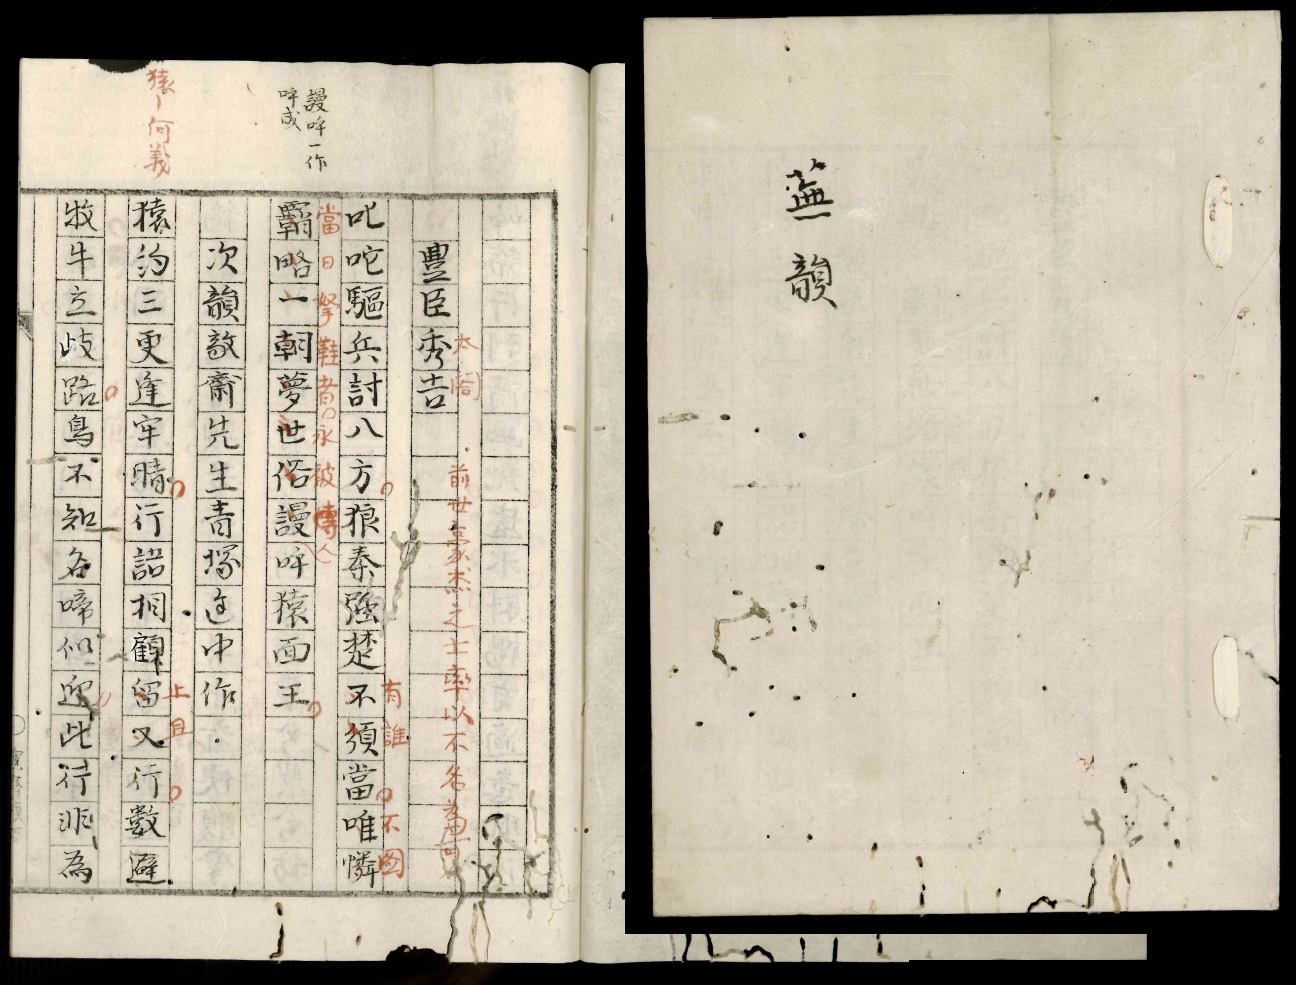 蕪韻
豊臣秀吉
太閤
前世豪杰之士率以不名為
叱咤驅兵討八方狼秦強楚不須當唯憐
有誰
不圖
霸略一朝夢世俗謾呼猿面王
當日拏鞋者永被傳人
謾呼一作
呼成
次韻敬齋先生青塚途中作
猿約三更逢牢晴行詔相顧留又行數避
止且
猿何義
牧牛立歧路鳥不知名啼似迎此行非為